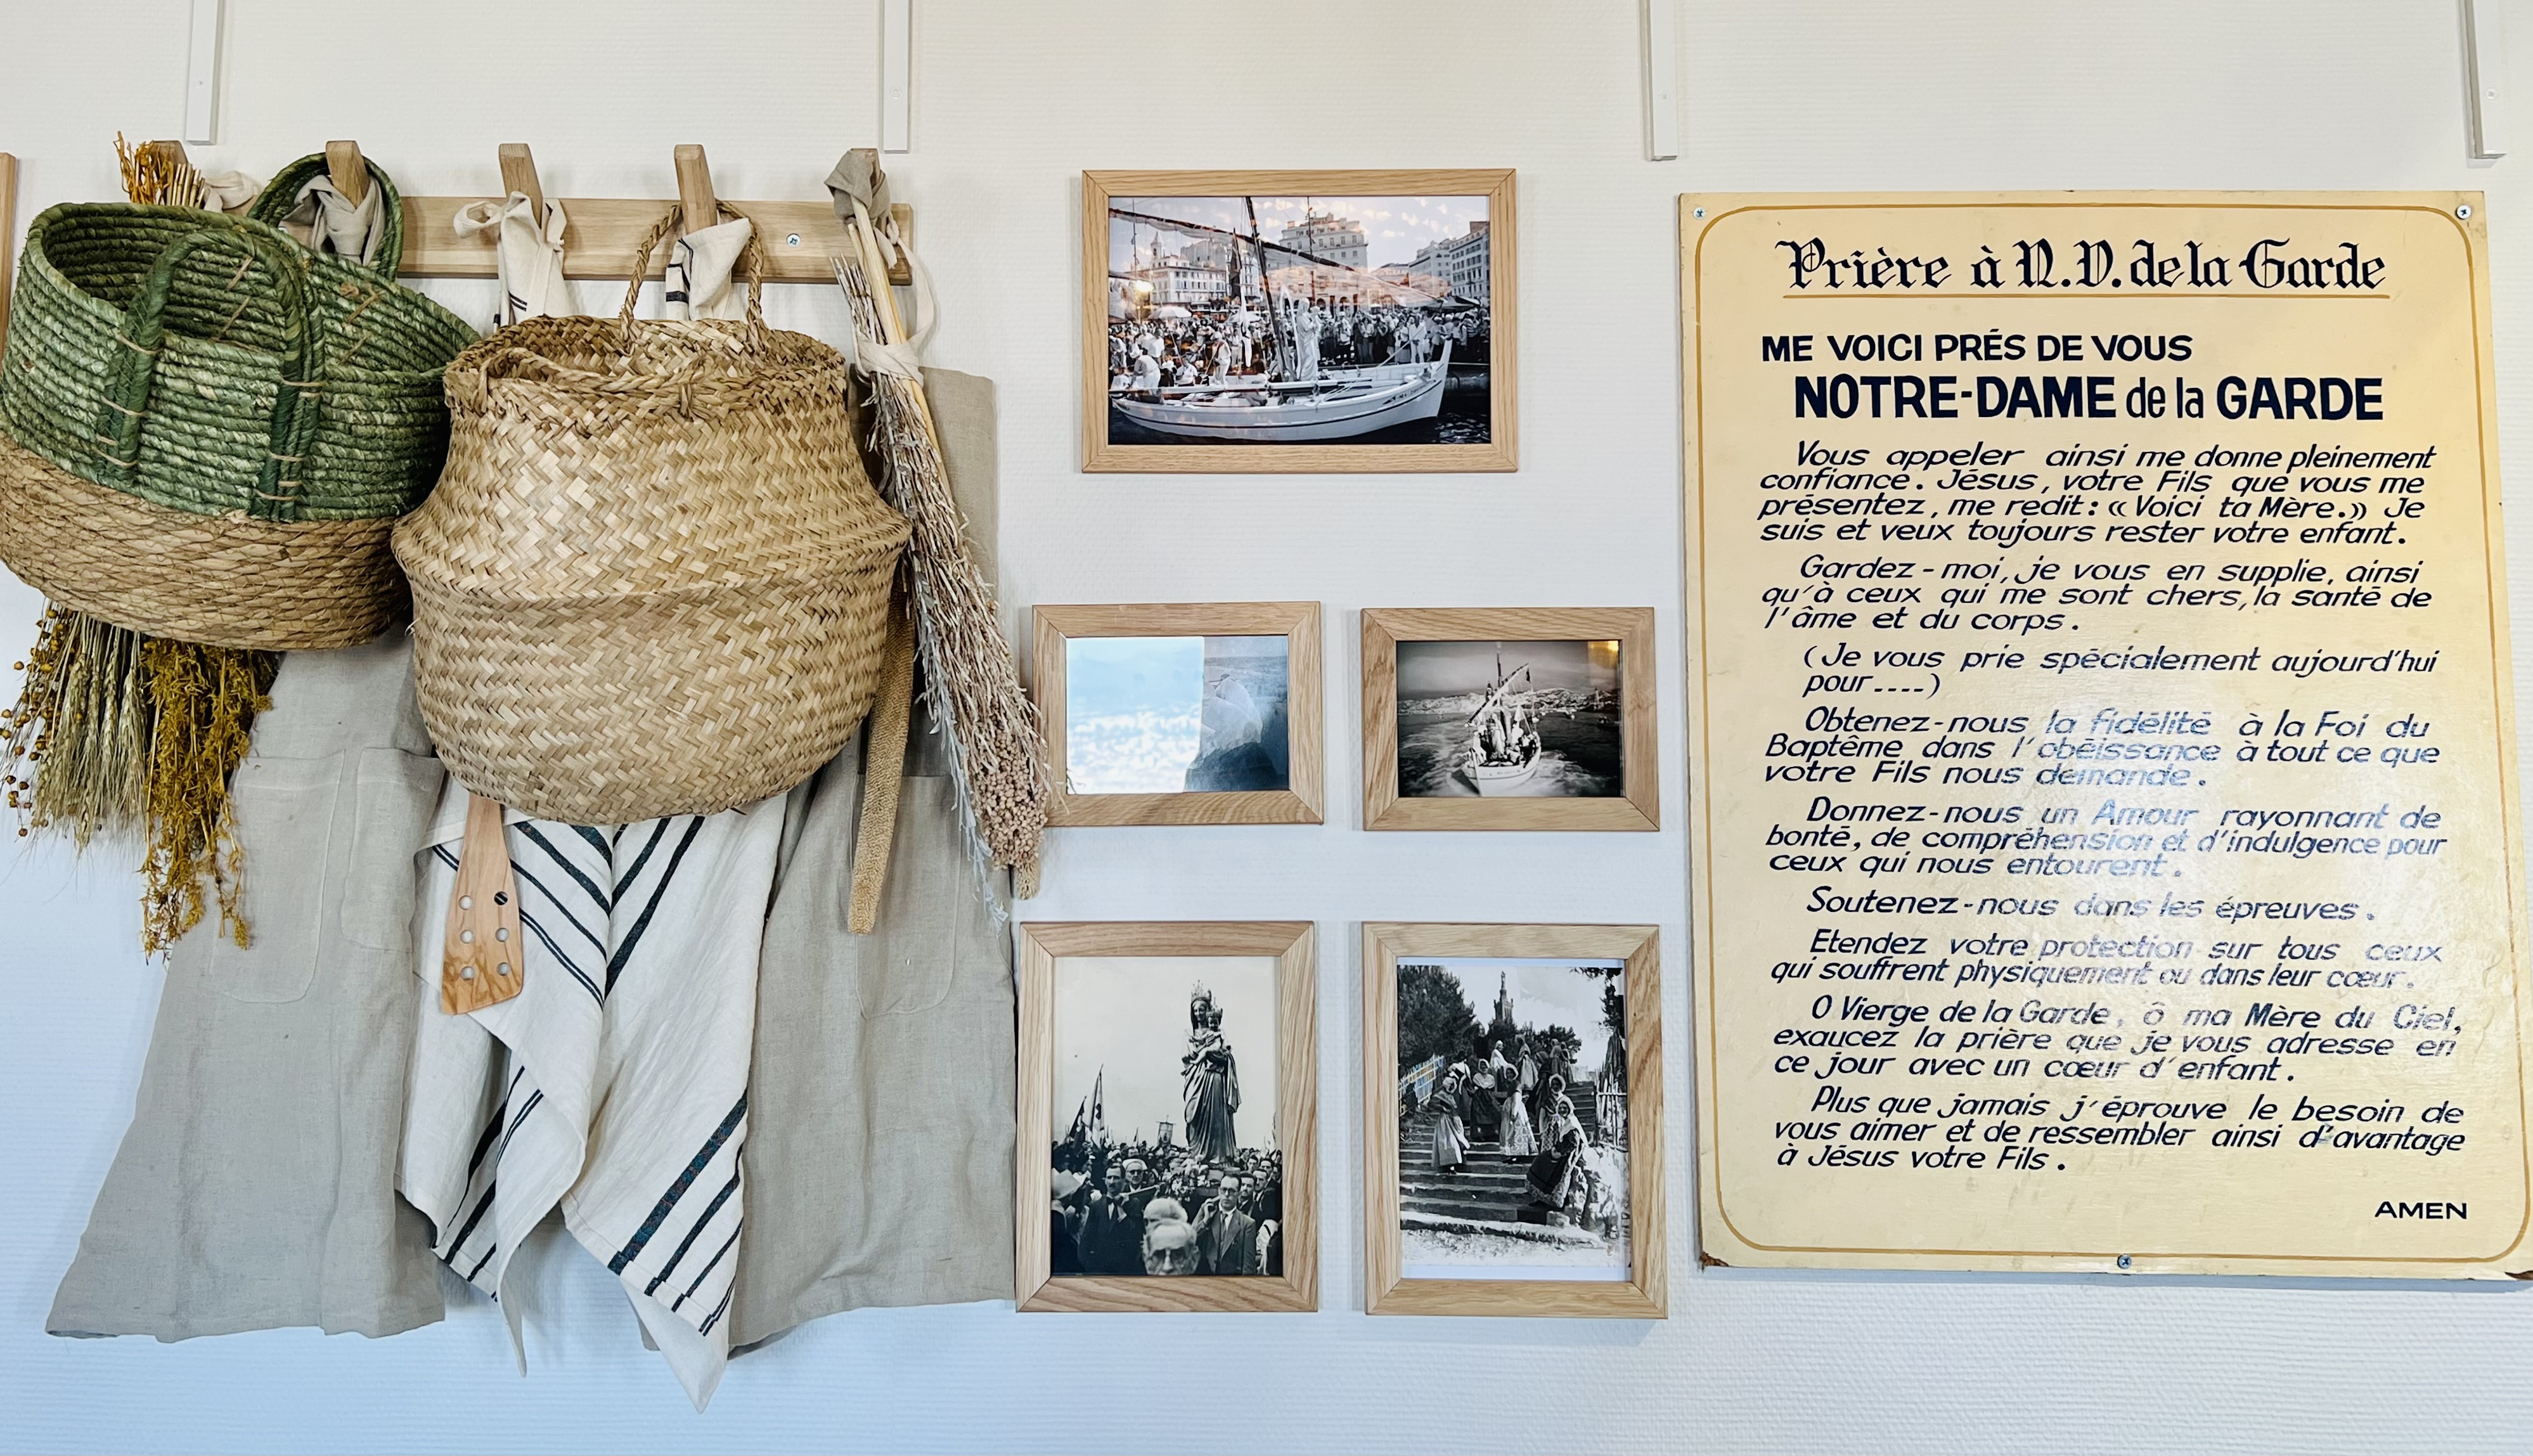 Prière à N.D. de la Garde
ME VOICI PRÉS DE VOUS
NOTRE-DAME de la GARDE
Vous appeler ainsi me donne pleinement
confiance. Jésus, votre Fils que vous me
présentez, me redit : « Voici ta Mère.» Je
suis et veux toujours rester votre enfant.
Gardez-moi, je vous en supplie, ainsi
qu'à ceux qui me sont chers, la santé de
l'âme et du corps.
(Je vous prie spécialement aujourd'hui
pour....)
Obtenez-nous la fidélité à la Foi du
Baptême dans l'obéissance à tout ce que
votre Fils nous demande.
Donnez-nous un Amour rayonnant de
bonté, de compréhension et d'indulgence pour
ceux qui nous entourent.
Soutenez-nous dans les épreuves.
Etendez votre protection sur tous ceux
qui souffrent physiquement ou dans leur cœur.
O Vierge de la Garde, ô ma Mère du Ciel,
exaucez la prière que je vous adresse en
ce jour avec un cœur d'enfant.
Plus que jamais j'éprouve le besoin de
vous aimer et de ressembler ainsi d'avantage
à Jésus votre Fils.
AMEN